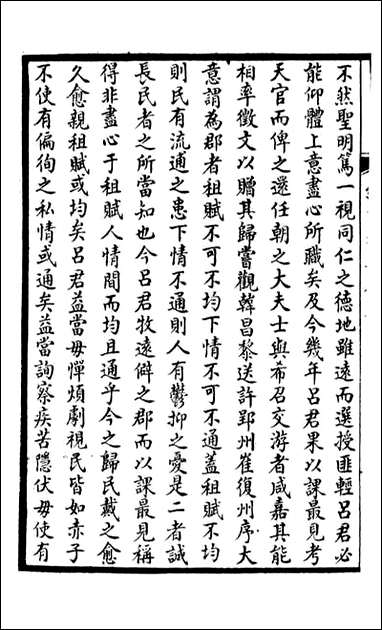 不然聖明篤一視同仁之德地雖遠而選授匪輕呂君必
能仰體上意盡心所職矣及今幾年呂君果以課最見考
天官而俾之還任朝之大夫士與希召交游者咸嘉其能
相率徵文以贈其歸嘗觀韓昌黎送許郢州崔復州序大
意謂為郡者租賦不可不均下情不可不通蓋租賦不均
則民有流逋之患下情不通則人有鬱抑之憂是二者誠
長民者之所當知也今呂君牧遠僻之郡而以課最見稱
得非盡心于租賦人情間而均且通乎今之歸民載之愈
久愈親租賦或均矣呂君益當毋憚煩劇視民皆如赤子
不使有偏徇之私情或通矣益當詢察疾苦隱伏毋使有